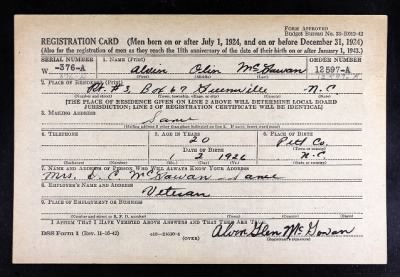 FORM APPROVED
Budget Bureau No. 33-R012-42
REGISTRATION CARD (Men born on or after July 1, 1924, and on or before December 31, 1924)
(Also for the registration of men as they reach the 18th anniversary of the date of their birth on or after January 1, 1943.)
SERIAL NUMBER 1. NAME (Print) ORDER NUMBER
W -376-A Alvin Olin McGowan 12597-A
(First) (Middle) (Last)
2. PLACE OF RESIDENCE (Print)
Rt. #3, Box 67 Greenville N.C.
(Number and street) (Town, township, village, or city) (County) (State)
[THE PLACE OF RESIDENCE GIVEN ON LINE 2 ABOVE WILL DETERMINE LOCAL BOARD
JURISDICTION; LINE 2 OF REGISTRATION CERTIFICATE WILL BE IDENTICAL]
3. MAILING ADDRESS
Same
(Mailing address if other than place indicated on line 2. If same, insert word same)
4. TELEPHONE 5. AGE IN YEARS 6. PLACE OF BIRTH
20 Pitt Co.
DATE OF BIRTH (Town or county)
2 1926 N.C.
(Exchange) (Number) (Mo.) (Day) (Yr.) (State or country)
7. NAME AND ADDRESS OF PERSON WHO WILL ALWAYS KNOW YOUR ADDRESS
Mrs. McGowan Same
8. EMPLOYER'S NAME AND ADDRESS
Veteran
9. PLACE OF EMPLOYMENT OR BUSINESS
(Number and street or R. F. D. number) (Town) (County) (State)
I AFFIRM THAT I HAVE VERIFIED ABOVE ANSWERS AND THAT THEY ARE TRUE.
DSS Form 1 (Rev. 11-16-42) (OVER) McGowan
(Registrant's signature)